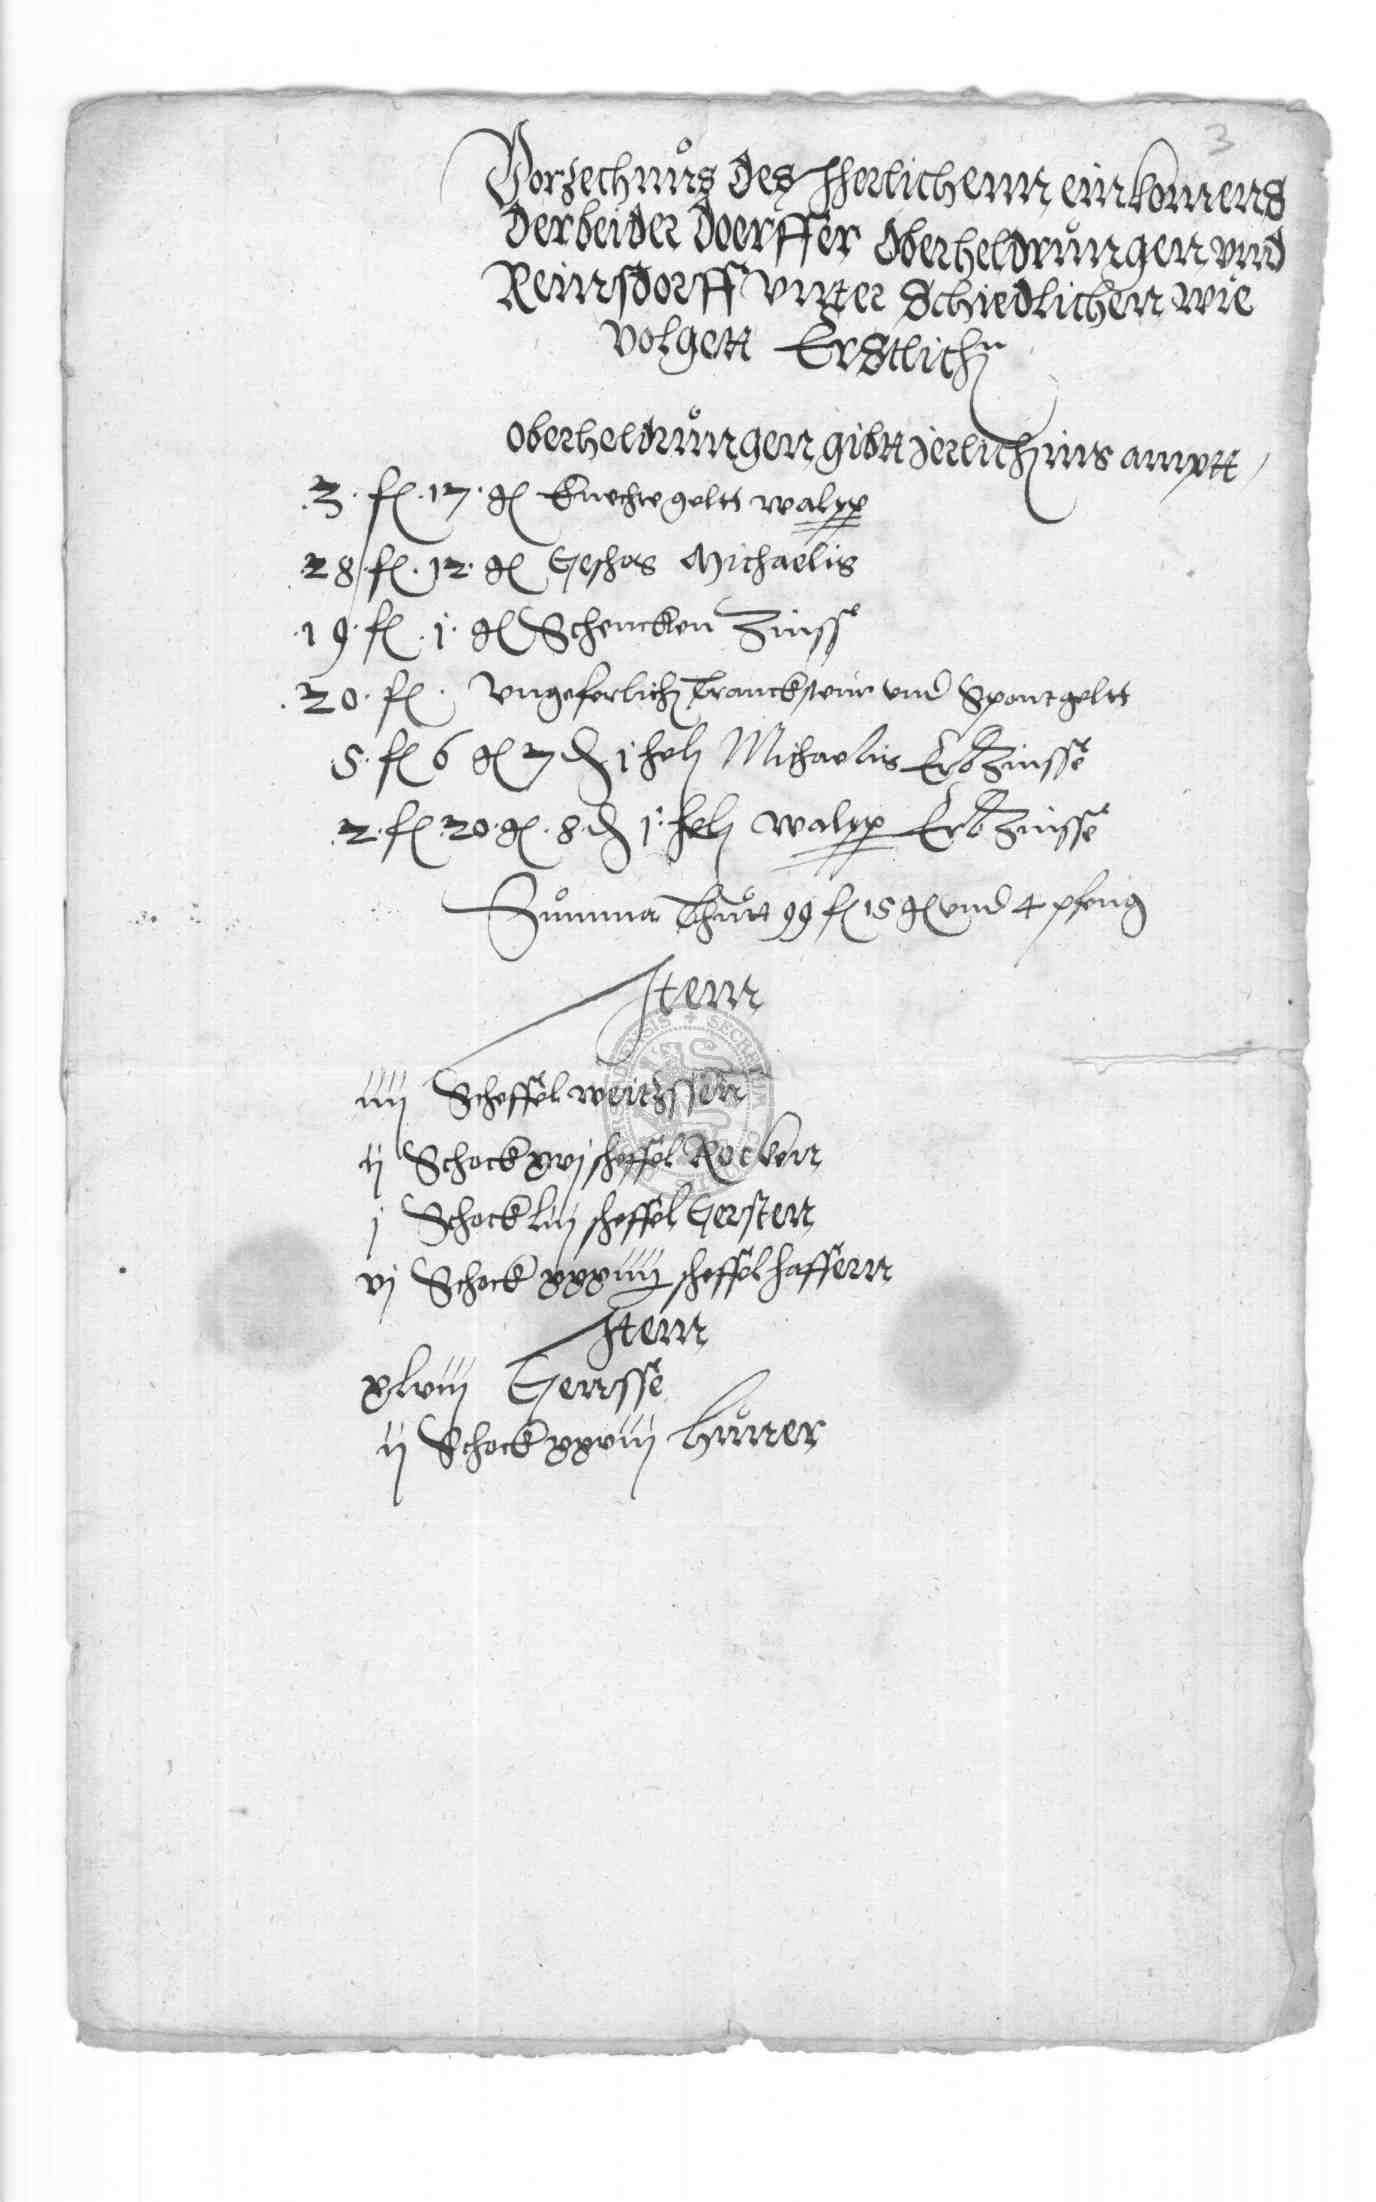 3
Vorzechnůs des Jherlichenn einkomens
der beider doerffer Oberheldrůngen vnd
Reinsdorff vnter Schiedlichen wie
volgett Erstlichn
Oberheldrůngen gibtt Jerlich ins amptt
.3. fl. 17. gl Knechte geltt walpp
.28. fl. 12. gl Geschos Michaelis
.19. fl. 1. gl Schencken Zinsse
.20. fl. vngeferlich Tranckstewr vnd Spont geltt
.5. fl 6 gl 7 d 1 helj Michaelis Erbzinsse
.2. fl. 20. gl. 8. d 1. helj walpp Erbzinsse
Sůmma Thůtt 99 fl 15 gl vnd 4 pfenig
Item
iiij Scheffel weitzssen
ij Schock xvj scheffel Rocken
j Schock liij scheffel Gersten
vj Schock xxxiiij scheffel haffern
Item
xlviij Gensse
ij Schock xxviij hůner
SECRETUM